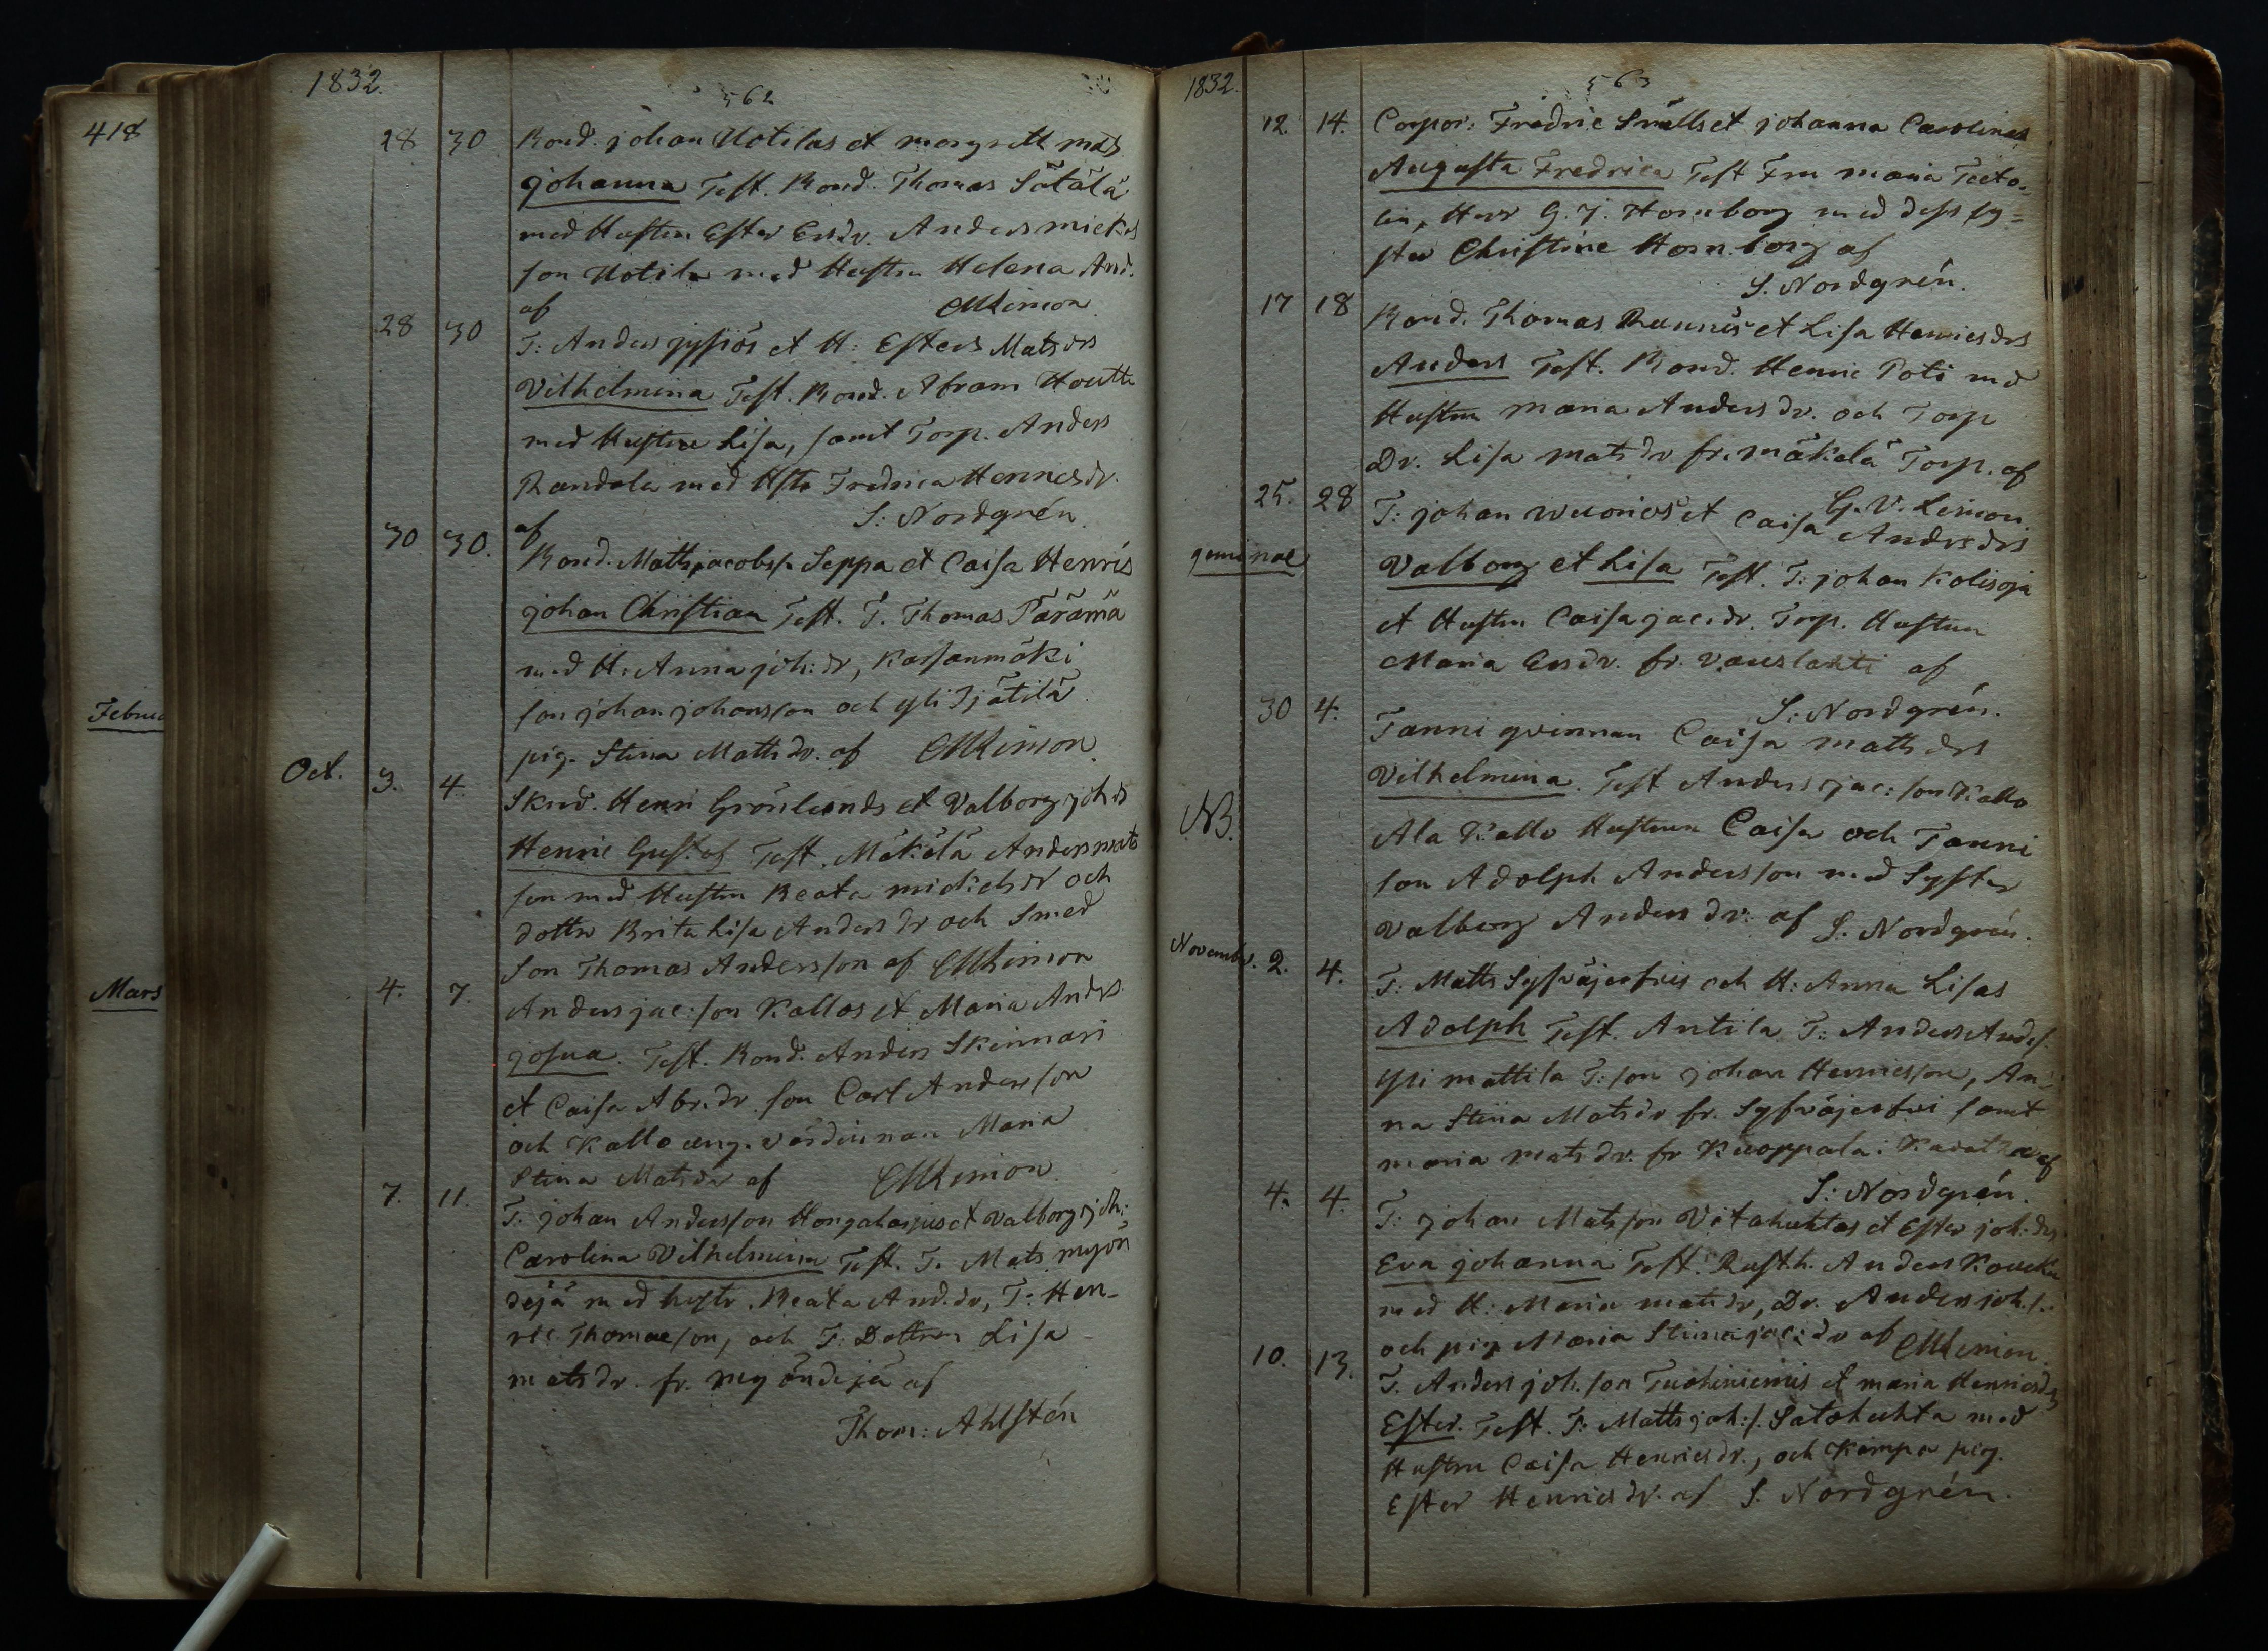 418
Februa
Mars
1832.
562
28 30 Bond. johan Uotilas et margrett mats
johanna Test. Bond. Thomas Sätälä
med Hustru Ester Ersdr. Anders mickels
son Uotila med Hustru Helena And.
af
28 30 T: Anders et H: Esters Matsdrs
Vilhelmina Test. Bond. Abram Houtti
med Hustru Lisa, samt Torp. Anders
Randala med Hstr Fredrica Henricsdr.
af S: Nordgrén.
30 30. Bond. Matts jacobss. Seppa et Caisa Henrics
johan Christian Test. T. Thomas Päärmä
med H: Anna joh:dr, Karjanmäki
son johan johansson och yli Ijätilä
pig. Stina Mattsdr. af
Oct. 3. 4. Sknd. Henri Grönlunds et Valborg joh.ds
Henric Gustaf Test. Mäkelä Anders mats
son med Hustru Beata michelsdr och
dottr Brita Lisa Andersdr och Smed
Son Thomas Andersson af
4. 7. Anders jac:son Kallos et Maria Andrs.
josua. Test. Bond. Anders Skinnari
et Caisa Abr.dr son Carl Andersson
och Kallo ung. värdinnan Maria
Stina Matsdr af
7. 11. T. johan Andersson Hongaharjus et Valborg joh:
Carolina Vilhelmina Test. T. Mats myön
dejä med hustr. Beata And.dr, T: Hen-
ric Thomasson, och T: Dottren Lisa
matsdr. fr. myöndejä af
Thom: Ahlstén
1832.
563
12. 14. Corpor: Fredric Snälls et johanna Carolinas
Augusta Fredrica Test Fru maria Tecto-
lin, Herr G. J. Hornborg med dess sy=
ster Christine Hornborg af
S. Nordgrén.
17 18 Bond. Thomas Runnis et Lisa Henricsdrs
Anders Test. Bond. Henric Poti med
Hustru maria Andersdr. och Torp
Dr. Lisa matsdr fr. mäkelä Torp. af
25. 28 T: johan Wuorios et Caisa Andrsdrs
geminae Valborg et Lisa Test. T: johan Kolisoja
et Hustru Caisa jac:dr. Torp. Hustrun
Maria Ersdr. fr. Vauslahti af
S: Nordgrén.
30 4. Tanni qvinnan Caisa mattsdrs
Vilhelmina. Test Anders jac:son Kallo
NB. Ala Kallo Hustrun Caisa och Tanni
son Adolph Andersson med Syster
Valborg Andersdr: af S. Nordgrén.
Novembr. 2. 4. T: Matts och H: Anna Lisas
Adolph Test. Antila T: Anders Anders.
yli mattila T:son johan Henricsson, An-
na Stina Matsdr fr. samt
maria matsdr. fr Kuoppala: af
S: Nordgrén.
4. 4. T: johan Matsson Vitahuhtas et Ester joh:drs
Eva johanna Test. Rusth. Anders Koucku
med H: Maria matsdr, Dr. Anders joh.s.
och pig Maria Stina jac:dr af
10. 13. T. Anders joh.son Tuohiniemis et maria Henricsdrs
Ester. Test. T: Matts joh:s. Satohuhta med
Hustru Caisa Henricsdr., och Kämpa pig.
Ester Henricsdr. af S. Nordgrén.